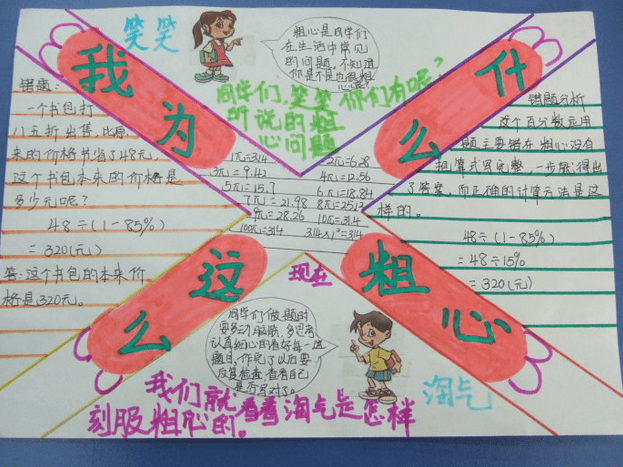 我为什么这么粗心
笑笑
粗心是同学们
在生活中常见
的问题,不知道
你是不是也很粗
心呢?
同学们,笑笑你们有呢?
所说的粗
心问题
错题:
一个书包打
八五折出售,比原
来的价格节省了48元,
这个书包本来的价格是
多少元呢?
48÷(1-85%)
=320(元)
答:这个书包的本来价
格是320元。
1π=3.14 2π=6.28
3π=9.42 4π=12.56
5π=15.7 6π=18.84
7π=21.98 8π=25.12
9π=28.26 10π=31.4
100π=314 3.14×1²=3.14
错题分析
这个百分数运用
题主要错在粗心没有
把算式写完整,一步就得出
了答案,而正确的计算方法是这
样的。
48÷(1-85%)
=48÷15%
=320(元)
现在
同学们做题时
要多动脑筋,多思考
认真细心的看好每一道
题目,作完了以后要
反复检查,看看自己
是否写对了。
淘气
我们就看看淘气是怎样
刻服粗心的。